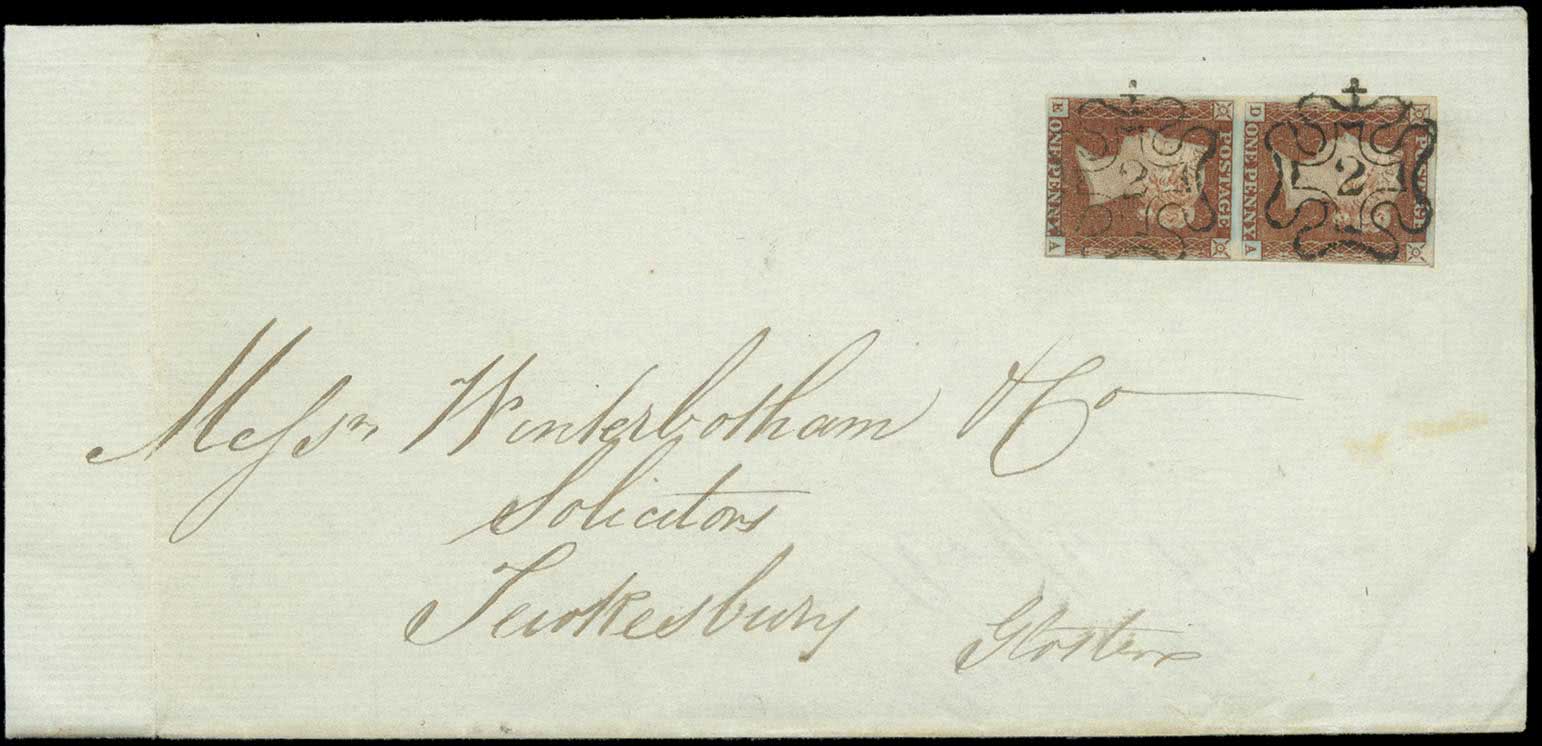 E ONE PENNY A POSTAGE 2
D ONE PENNY A POSTAGE 2
Messrs Winterbotham & Co
Solicitors
Tewkesbury
Glosters